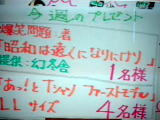 今週のプレゼント
爆笑問題・著
「昭和は遠くになりにけり」
提供:幻冬舎
1名様
「あっ!とTシャツ ファーストモデル」
LLサイズ
4名様